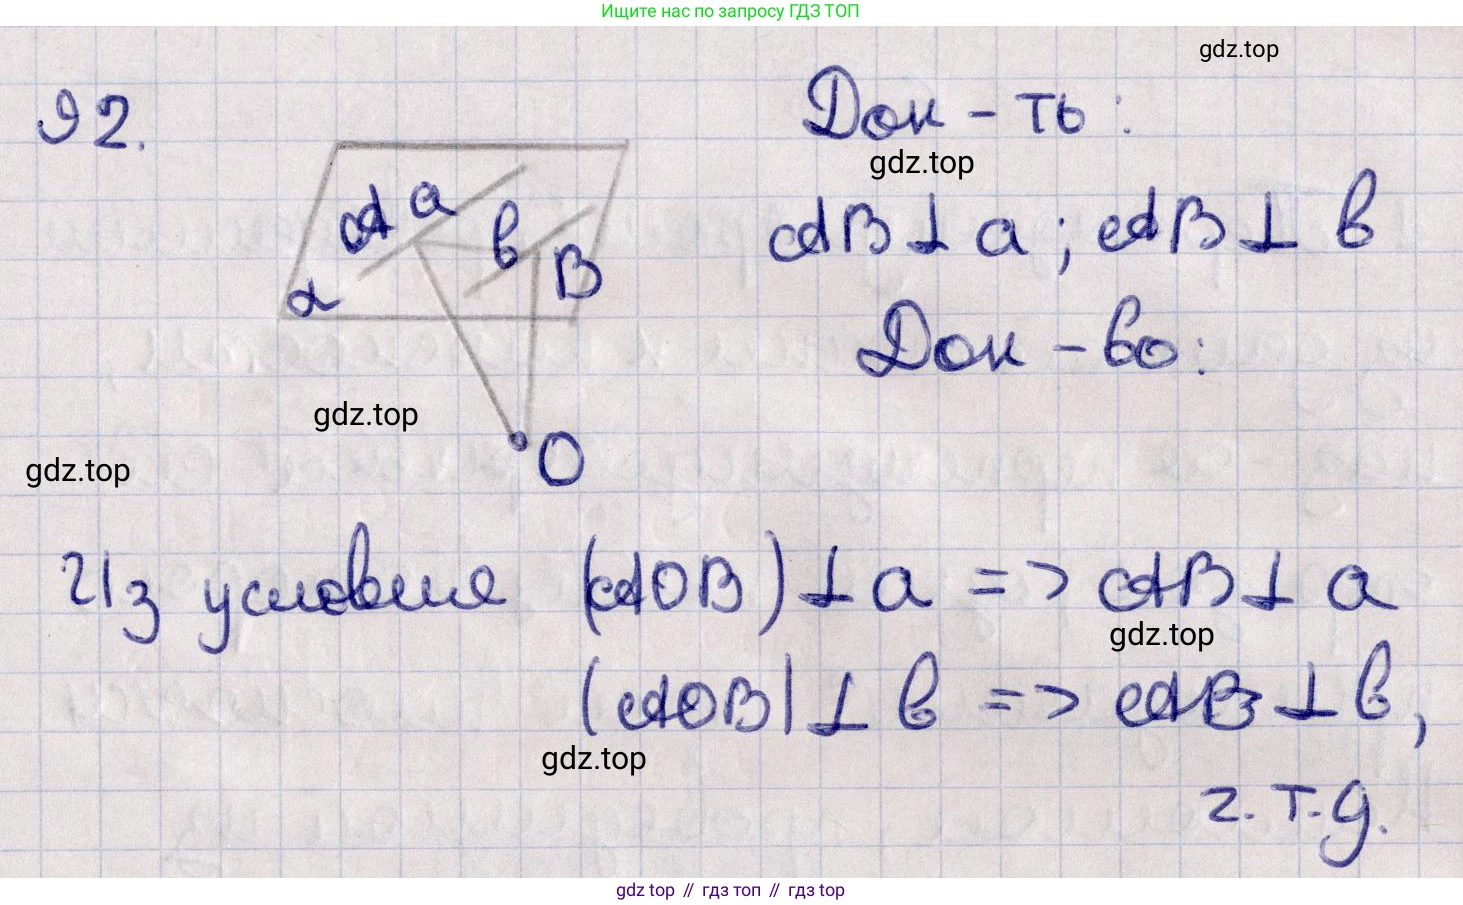 Ищите нас по запросу ГДЗ ТОП
gdz.top
92.
Док-ть:
gdz.top
A a
b
AB ⊥ a; AB ⊥ b
α
B
Док-во:
gdz.top
O
gdz.top
Из условия (AOB) ⊥ a => AB ⊥ a
gdz.top
(AOB) ⊥ b => AB ⊥ b,
gdz.top
ч.т.д.
gdz top // гдз топ // гдз top